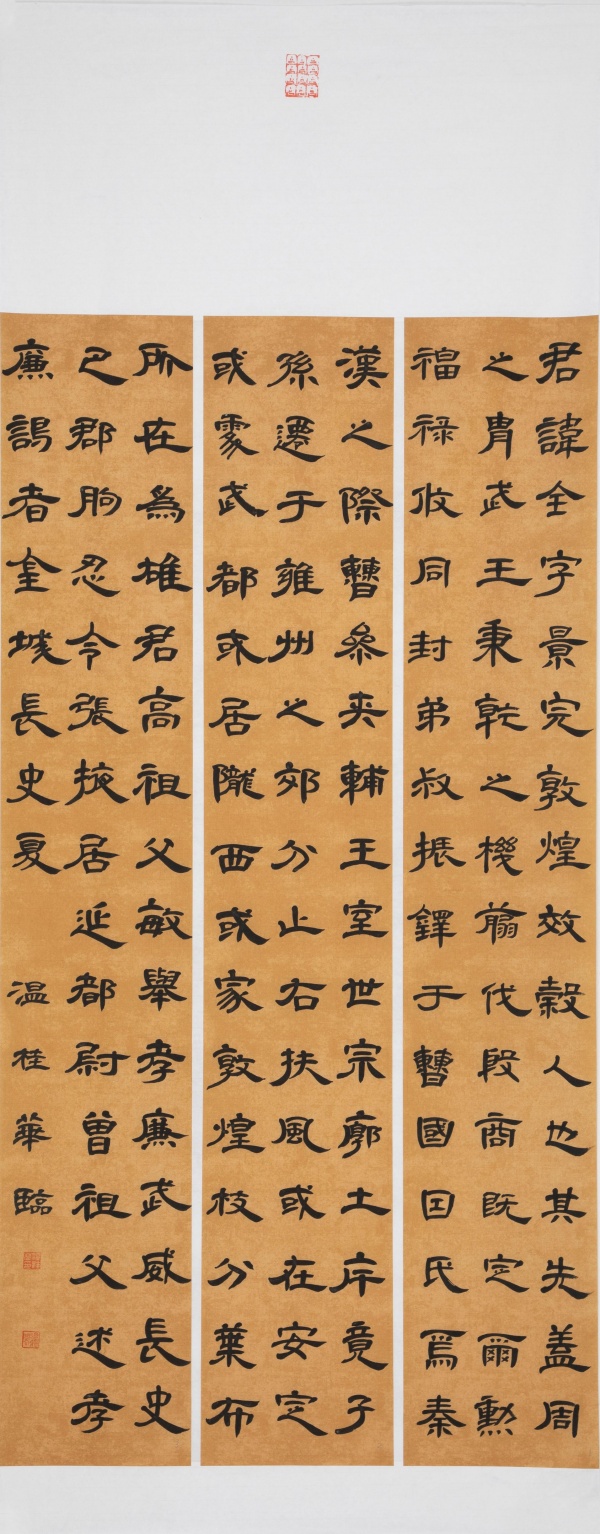 君諱全字景完敦煌效穀人也其先蓋周
之胄武王秉乾之機翦伐殷商既定爾勲
福祿攸同封弟叔振鐸于曹國因氏焉秦
漢之際曹參夾輔王室世宗廓土斥竟子
孫遷于雍州之郊分止右扶風或在安定
或處武都或居隴西或家敦煌枝分葉布
所在為雄君高祖父敏舉孝廉武威長史
巴郡朐忍令張掖居延都尉曾祖父述孝
廉謁者金城長史夏
温桂華臨